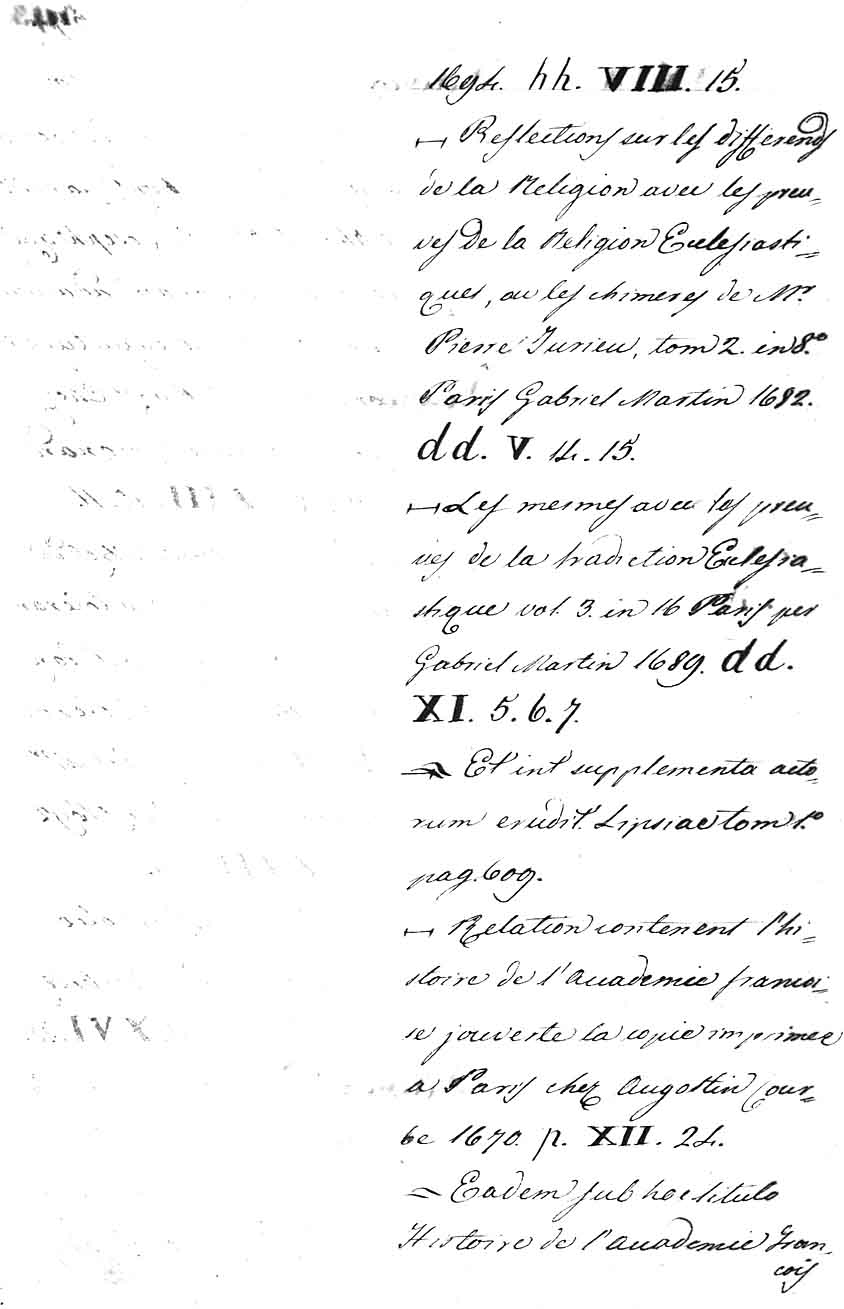 1694. hh. VIII. 15.
⊢ Reflections sur les differends
de la Religion avec les preu=
ves de la Religion Ecclesiasti=
ques, ou les chimeres de Mr.
Pierre Jurieu, tom 2. in 8.°
Paris Gabriel Martin 1682.
dd. V. 14. 15.
⊢ Les mesmes avec les preu=
ves de la tradiction Eclesia=
stique vol. 3. in 16 Paris per
Gabriel Martin 1689. dd.
XI. 5. 6. 7.
Et int' supplementa acto=
rum erudit. Lipsiae tom 1.°
pag. 609.
⊢ Relation contenent l'hi=
stoire de l'Academie francoi=
se jouveste la copie imprimee
a Paris chez Augostin Cour=
be 1670. p. XII. 24.
= Eadem sub hoc titulo
Histoire de l'Academie Fran=
cois